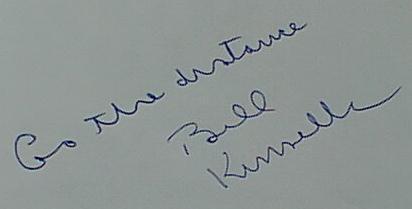 Go the distance
Bill
Kinsella